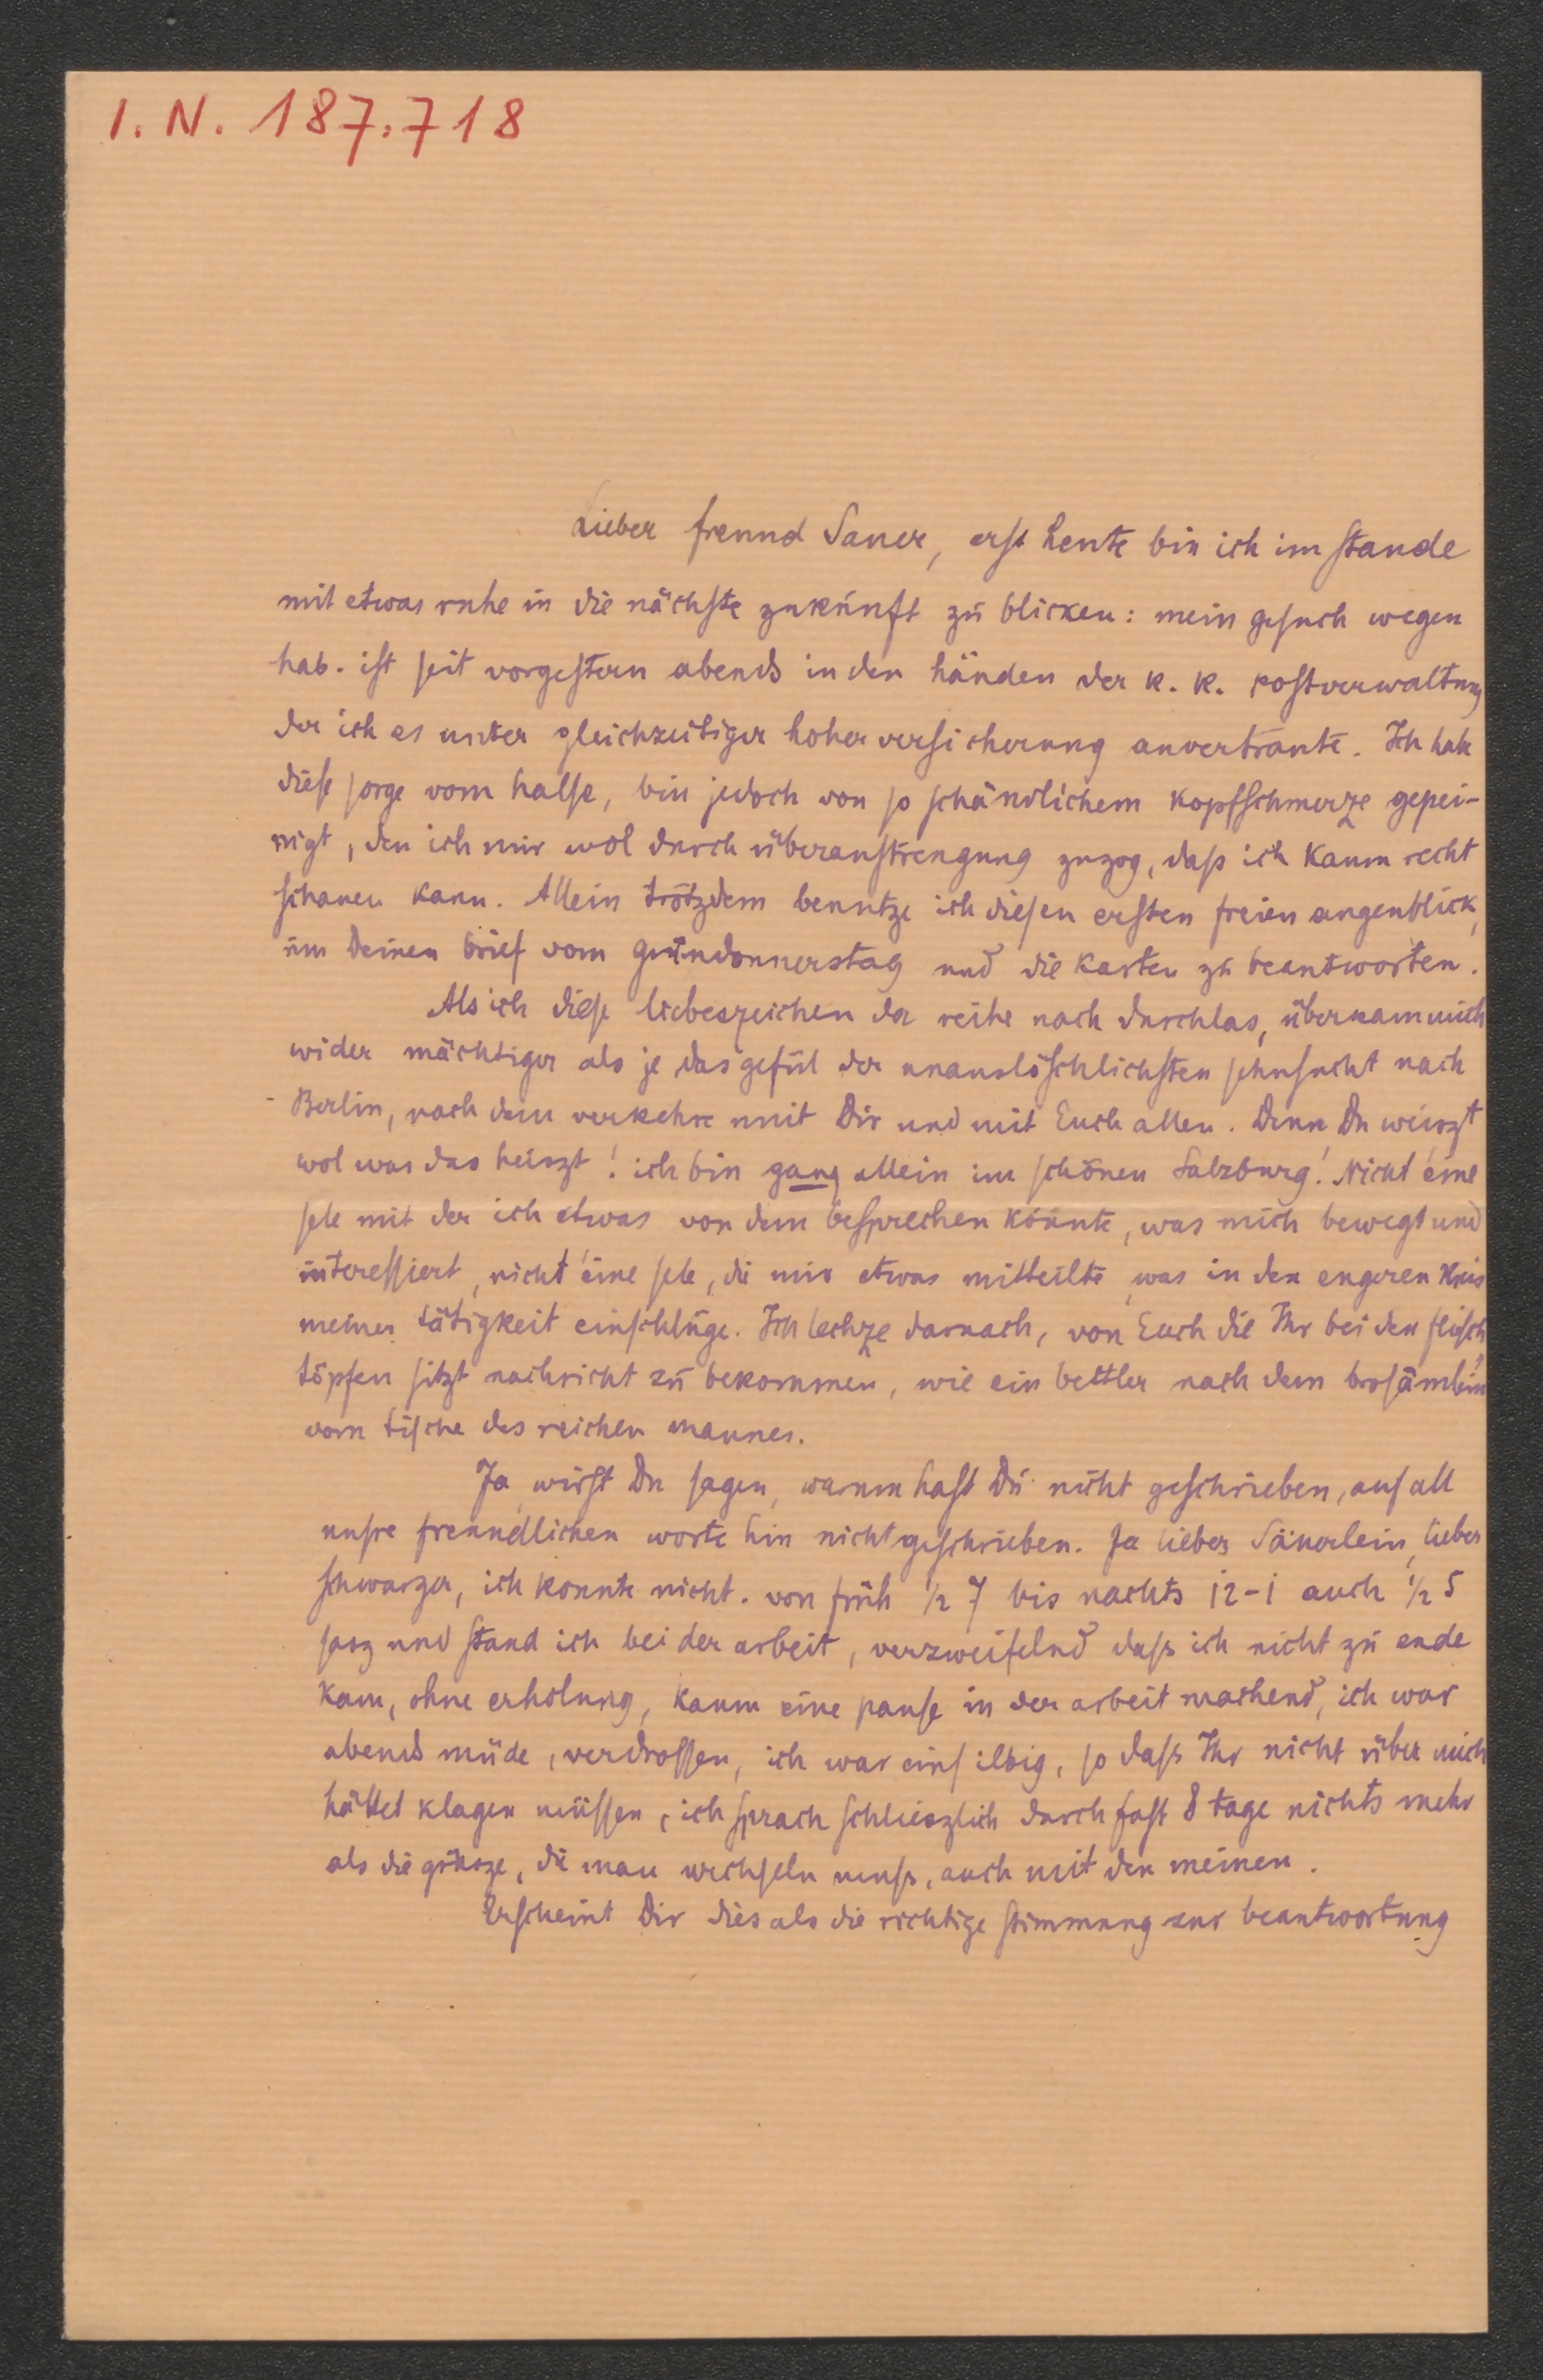 I. N. 187.718
Lieber freund Sauer, erst heute bin ich im stande
mit etwas ruhe in die nächste zukunft zu blicken: mein gesuch wegen
hab. ist seit vorgestern abends in den händen der k. k. postverwaltung
der ich es unter gleichzeitiger hoher versicherung anvertraute. Ich habe
diese sorge vom halse, bin jedoch von so schändlichem kopfschmerze gepei-
nigt, den ich mir wol durch überanstrengung zuzog, dass ich kaum recht
schauen kann. Allein trotzdem benutze ich diesen ersten freien augenblick,
um Deinen brief vom gründonnerstag und die karten zu beantworten.
Als ich diese liebeszeichen der reihe nach durchlas, überkam mich
wider mächtiger als je das gefül der unauslöschlichsten sehnsucht nach
Berlin, nach dem verkehre mit Dir und mit Euch allen. Denn Du weiszt
wol was das heiszt! ich bin ganz allein im schönen Salzburg! Nicht éine
sele mit der ich etwas von dem besprechen könnte, was mich bewegt und
interessiert, nicht éine sele, die mir etwas mitteilte, was in den engeren Kreis
meiner tätigkeit einschlüge. Ich lechze darnach, von Euch die Ihr bei den fleisch
töpfen sitzt nachricht zu bekommen, wie ein bettler nach dem brosämlein
vom tische des reichen mannes.
Ja, wirst Du sagen, warum hast Du nicht geschrieben, auf all
unsre freundlichen worte hin nicht geschrieben. Ja lieber Säuerlein, lieber
schwarzer, ich konnte nicht. von früh ½ 7 bis nachts 12-1 auch ½ 5
sasz und stand ich bei der arbeit, verzweifelnd dass ich nicht zu ende
kam, ohne erholung, kaum eine pause in der arbeit machend, ich war
abends müde, verdrossen, ich war einsilbig, so dass Ihr nicht über mich
hättet klagen müssen, ich sprach schlieszlich durch fast 8 tage nichts mehr
als die grüsze, die man wechseln muss, auch mit den meinen.
Erscheint Dir dies als die richtige stimmung zur beantwortung